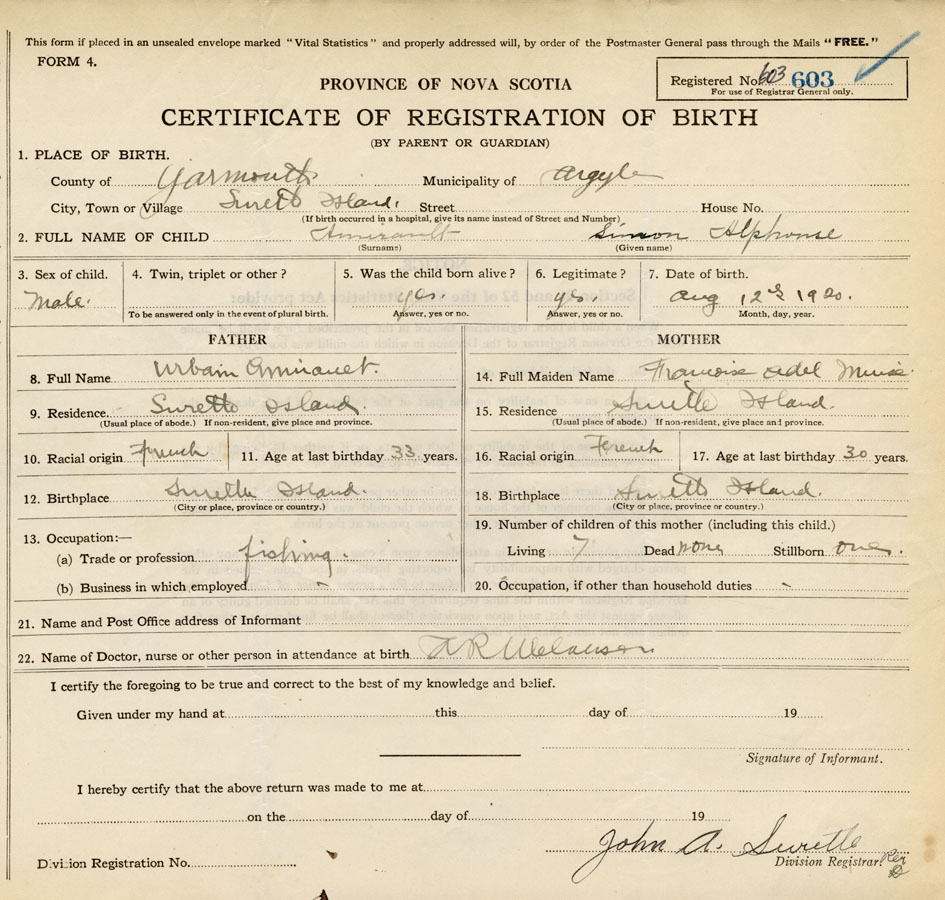 This form if placed in an unsealed envelope marked "Vital Statistics" and properly addressed will, by order of the Postmaster General pass through the Mails "FREE."
FORM 4.
Registered No. 603 603
For use of Registrar General only.
PROVINCE OF NOVA SCOTIA
CERTIFICATE OF REGISTRATION OF BIRTH
(BY PARENT OR GUARDIAN)
1. PLACE OF BIRTH.
County of Yarmouth Municipality of Argyle
City, Town or Village Surette Island. Street House No.
(If birth occurred in a hospital, give its name instead of Street and Number)
2. FULL NAME OF CHILD Amirault Simon Alphonse
(Surname) (Given name)
3. Sex of child. 4. Twin, triplet or other? 5. Was the child born alive? 6. Legitimate? 7. Date of birth.
Male. yes. yes. Aug 12 1920.
To be answered only in the event of plural birth. Answer, yes or no. Answer, yes or no. Month, day, year.
FATHER MOTHER
8. Full Name Urbain 14. Full Maiden Name Francoise Adel Muise
9. Residence Surette Island. 15. Residence Surette Island.
(Usual place of abode.) If non-resident, give place and province. (Usual place of abode.) If non-resident, give place and province.
10. Racial origin French 11. Age at last birthday 33 years. 16. Racial origin French 17. Age at last birthday 30 years.
12. Birthplace Surette Island. 18. Birthplace Surette Island.
(City or place, province or country.) (City or place, province or country.)
13. Occupation:— 19. Number of children of this mother (including this child.)
(a) Trade or profession fishing. Living 7 Dead none Stillborn
(b) Business in which employed - 20. Occupation, if other than household duties -
21. Name and Post Office address of Informant
22. Name of Doctor, nurse or other person in attendance at birth A R Melanson
I certify the foregoing to be true and correct to the best of my knowledge and belief.
Given under my hand at this day of 19
Signature of Informant.
I hereby certify that the above return was made to me at
on the day of 19
John A. Surette
Division Registration No. Division Registrar. Per